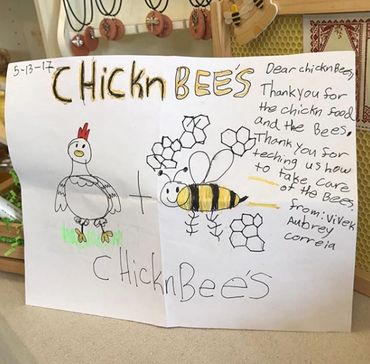 5-13-17
CHickn BEE'S
Dear chicknBees,
Thankyou for
the chickn food
and the Bees.
Thank You for
teching us how
to take care
of the Bees.
from: Vivek
Aubrey
correia
+
CHicknBee's